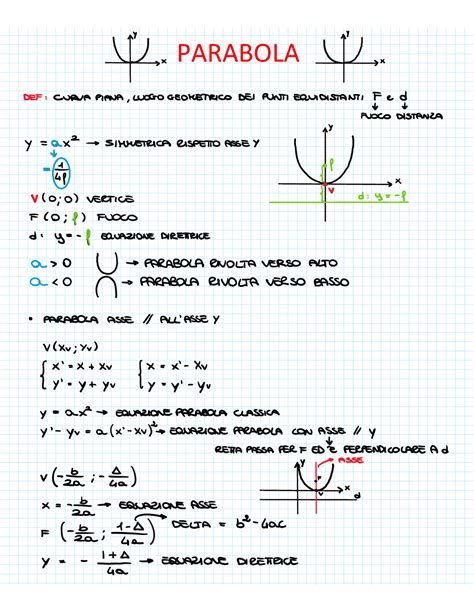 y x PARABOLA y x
DEF: CURVA PIANA, LUOGO GEOMETRICO DEI PUNTI EQUIDISTANTI F e d
FUOCO DISTANZA
y = ax² → SIMMETRICA RISPETTO ASSE Y
= 1/4f
V(0;0) VERTICE
F(0;f) FUOCO
d: y=-f EQUAZIONE DIRETTRICE
y f V x d: y=-f
a > 0 → PARABOLA RIVOLTA VERSO ALTO
a < 0 → PARABOLA RIVOLTA VERSO BASSO
• PARABOLA ASSE // ALL'ASSE Y
V(Xv; Yv)
{ x' = x + xv { x = x' - xv
{ y' = y + yv { y = y' - yv
y = ax² → EQUAZIONE PARABOLA CLASSICA
y' - yv = a(x' - xv)² → EQUAZIONE PARABOLA CON ASSE // Y
RETTA PASSA PER F ED è PERPENDICOLARE A d
V(-b/2a ; -Δ/4a)
x = -b/2a → EQUAZIONE ASSE
F(-b/2a ; 1-Δ/4a) DELTA = b²-4ac
y = - 1+Δ/4a → EQUAZIONE DIRETTRICE
y ASSE F V x d